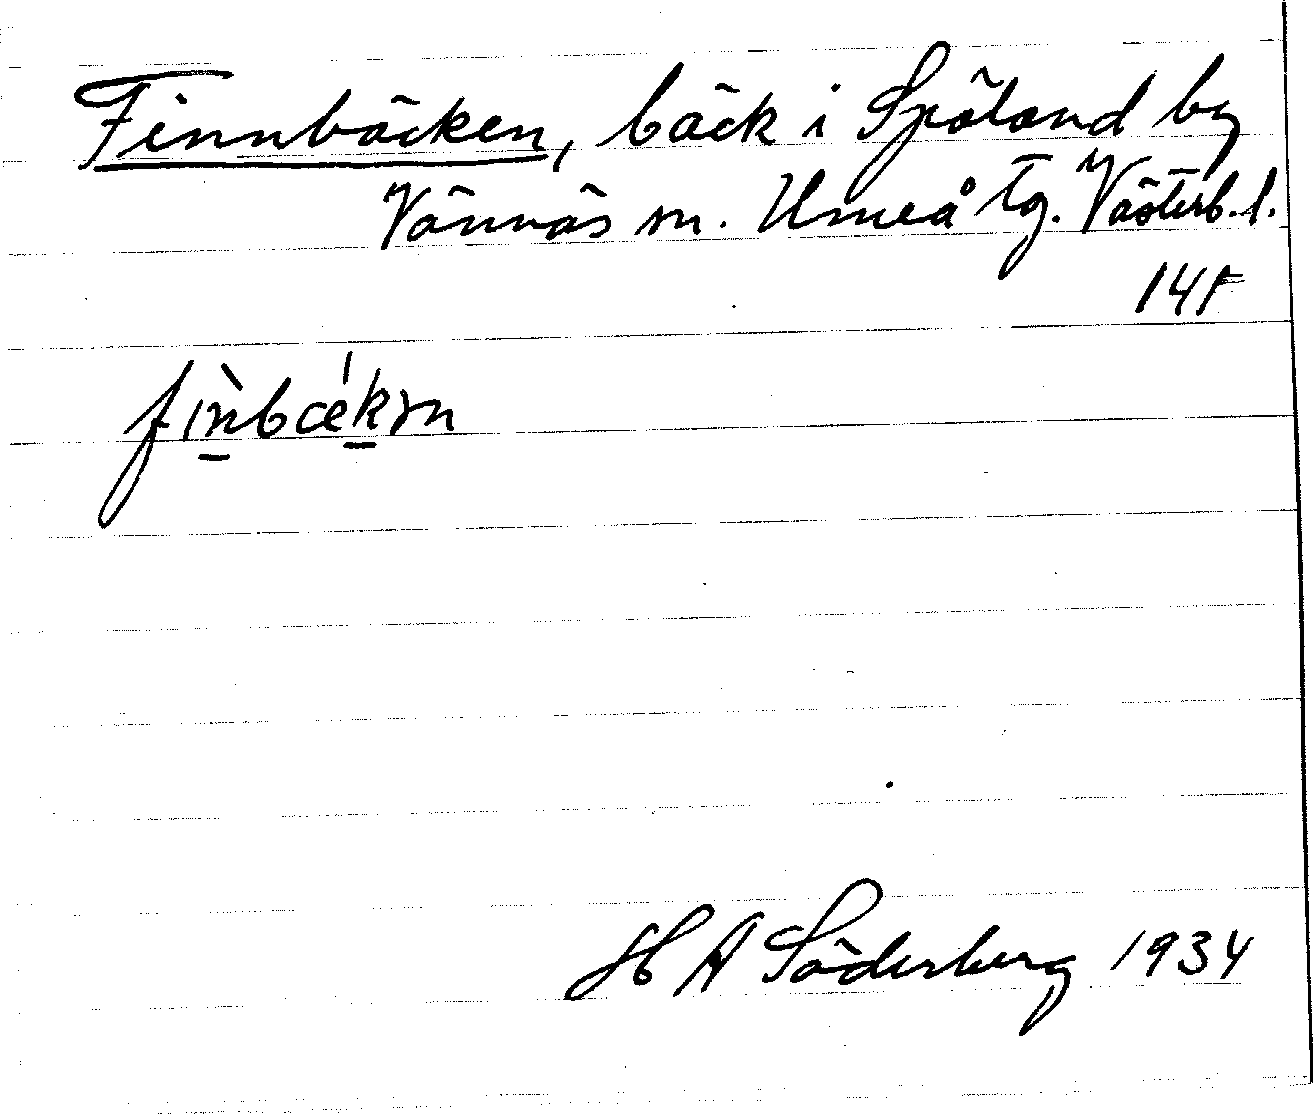 Finnbäcken, bäck i Spöland by
Vännäs sn. Umeå tg. Västerb. l.
fi̠nbæk̠ən
H A Söderberg 1934